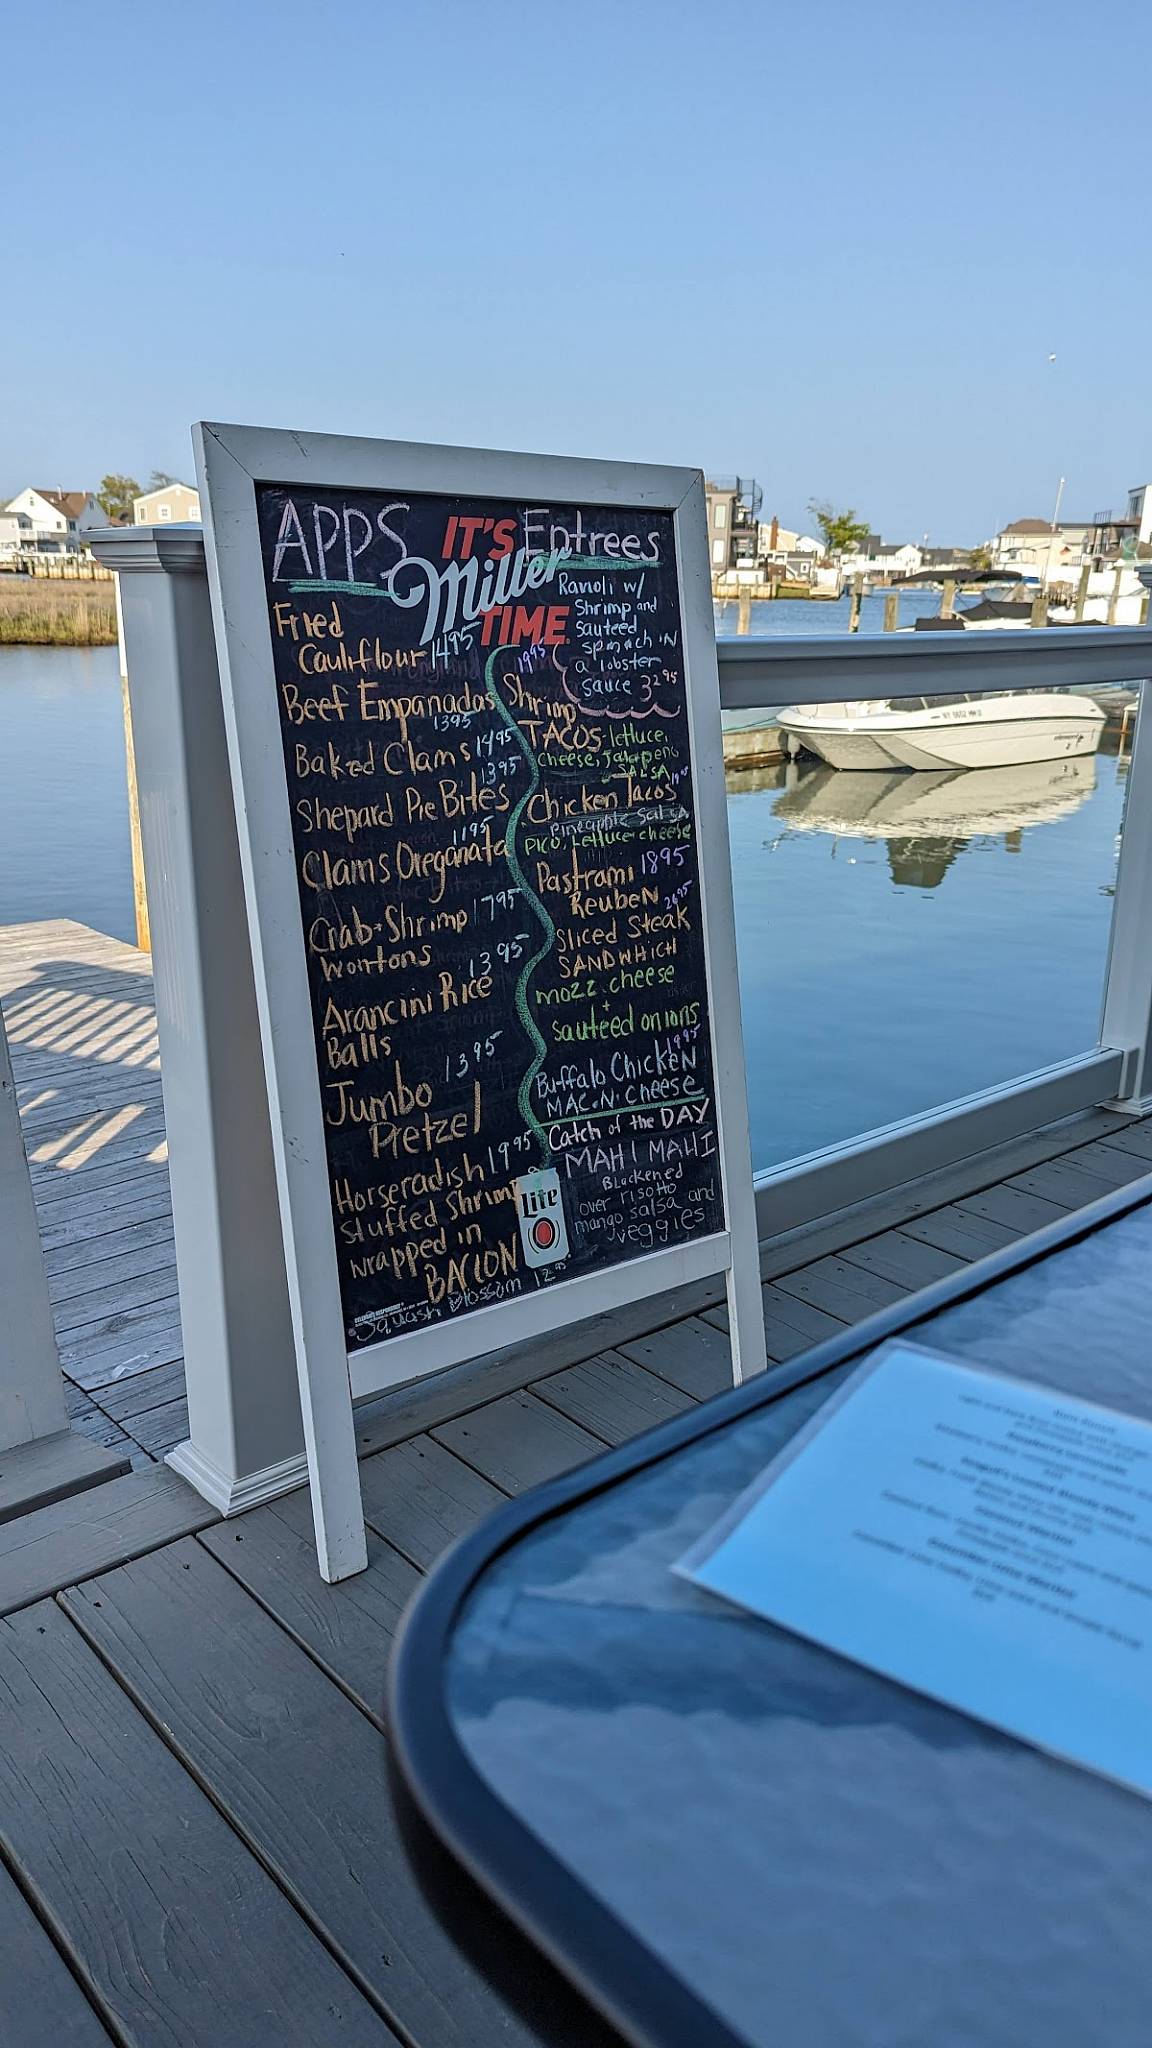 APPS
Fried
Cauliflour 1495
Beef Empanadas
1395
Baked Clams 1495
1395
Shepard Pie Bites
1195
Clams Oreganata
Crab + Shrimp 1795
wontons
1395
Arancini Rice
Balls
Jumbo 1395
Pretzel
Horseradish 1995
Stuffed Shrimp
wrapped in
BACON
Squash Blossom 1295
IT'S
Miller
TIME
Lite
Entrees
Ravioli w/
Shrimp and
sauteed
spinach 'N
a lobster
sauce 3295
1995
Shrimp
TACOS - lettuce,
cheese, Jalapeno
SALSA
Chicken Tacos
Pineapple Salsa
PICO, Lettuce cheese
Pastrami 1895
Reuben
2695
Sliced Steak
SANDWHICH
mozz. cheese
+
sauteed onions
1995
Buffalo Chicken
MAC.N.Cheese
Catch of the DAY
MAHI MAHI
Blackened
over risotto
mango salsa and
veggies